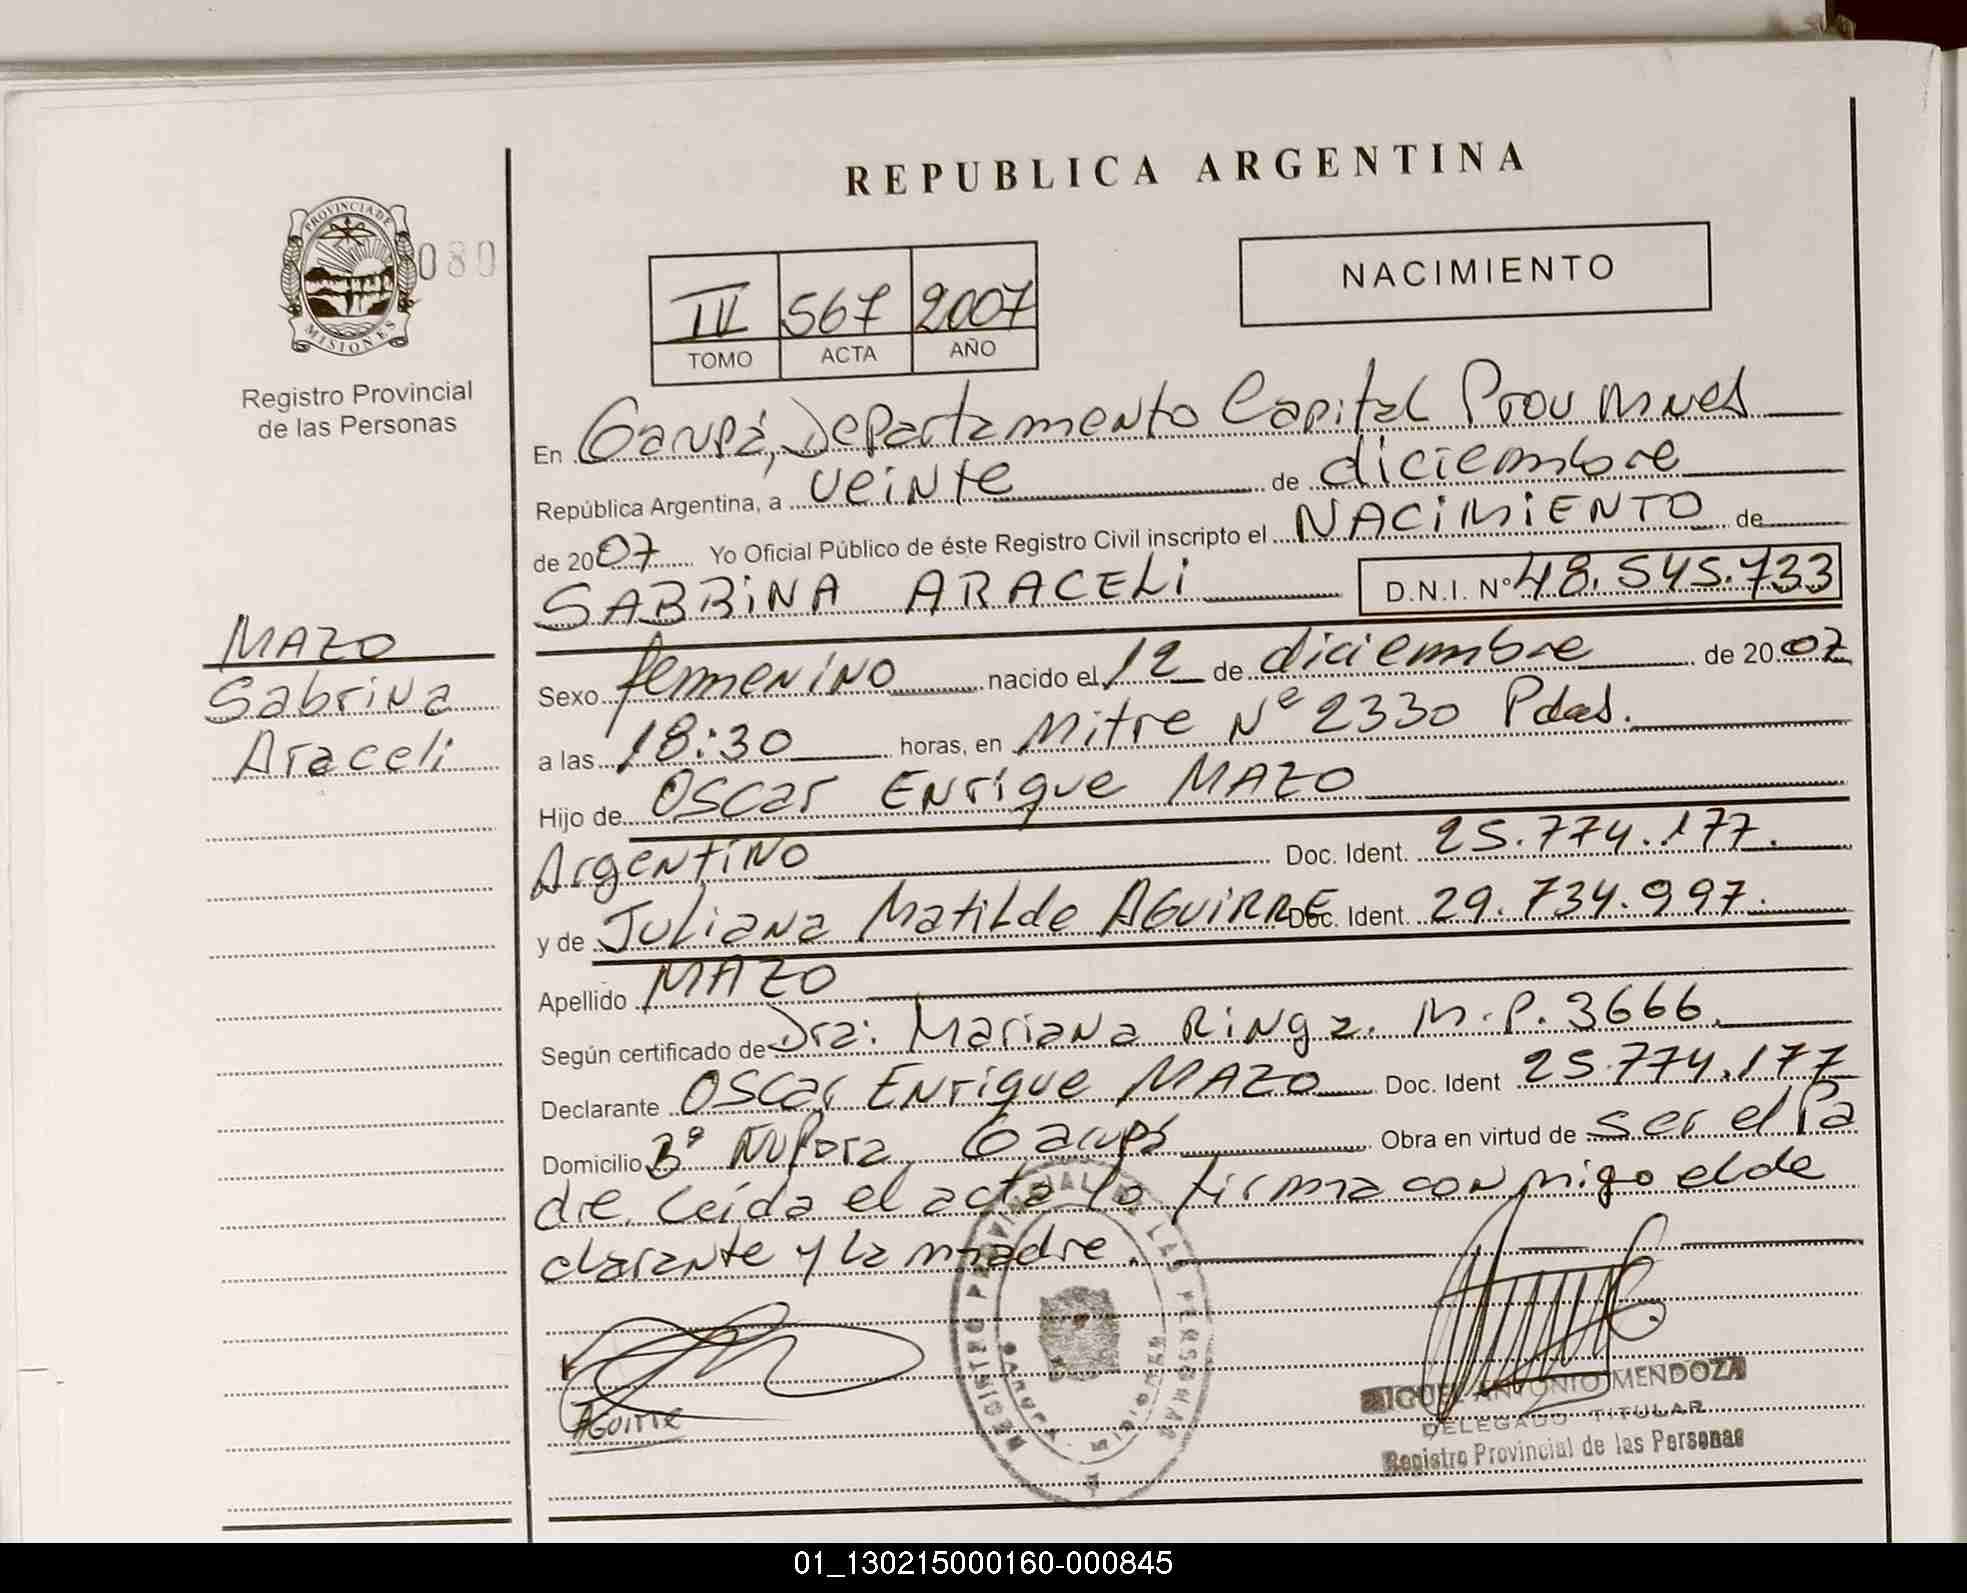 REPUBLICA ARGENTINA
PROVINCIA DE
MISIONES
080
Registro Provincial
de las Personas
IV 567 2007
TOMO ACTA AÑO
NACIMIENTO
En Garupá, Departamento Capital Prov Mnes
República Argentina, a veinte de diciembre
de 2007 Yo Oficial Público de éste Registro Civil inscripto el NACIMIENTO de
SABRINA ARACELI D.N.I. Nº 48.545.733
MAZO
Sabrina
Araceli
Sexo femenino nacido el 12 de diciembre de 2007
a las 18:30 horas, en Mitre Nº 2330 Pdas.
Hijo de Oscar Enrique MAZO
Argentino Doc. Ident. 25.774.177.
y de Juliana Matilde AGUIRRE Doc. Ident. 29.734.997.
Apellido MAZO
Según certificado de Dra: Mariana Ringa. M.P. 3666.
Declarante Oscar Enrique MAZO Doc. Ident 25.774.177
Domicilio Bº Ñu Pora, Garupá Obra en virtud de ser el Pa
dre. Leída el acta lo firma conmigo el de
clarante y la madre.
REGISTRO PROVINCIAL DE LAS PERSONAS
GARUPA
Aguirre
MIGUEL ANTONIO MENDOZA
DELEGADO TITULAR
Registro Provincial de las Personas
01_130215000160-000845